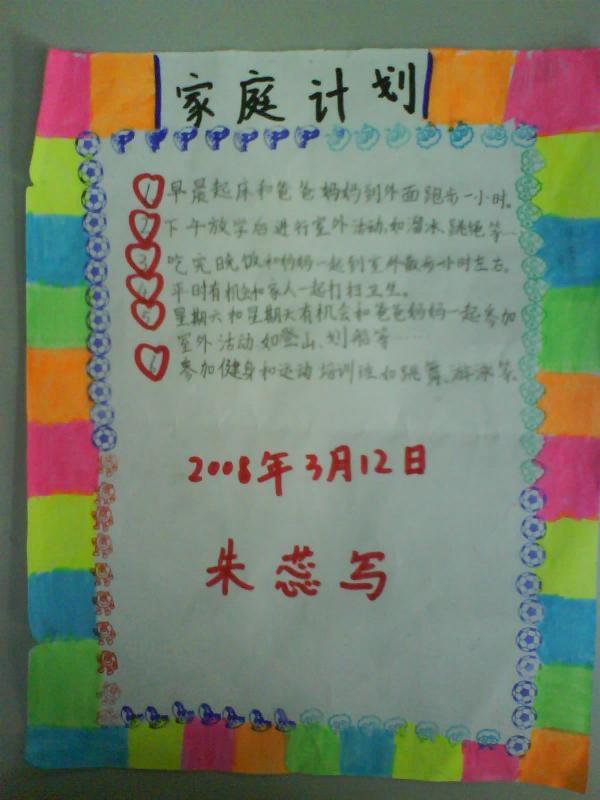 家庭计划
1 早晨起床和爸爸妈妈到外面跑步一小时。
2 下午放学后进行室外活动,如溜冰、跳绳等…
3 吃完晚饭和妈妈一起到室外散步一小时左右。
4 平时有机会和家人一起打扫卫生。
5 星期六和星期天有机会和爸爸妈妈一起参加
室外活动、如登山、划船等……
参加健身和运动培训班如跳舞、游泳等、
2008年3月12日
朱蕊写